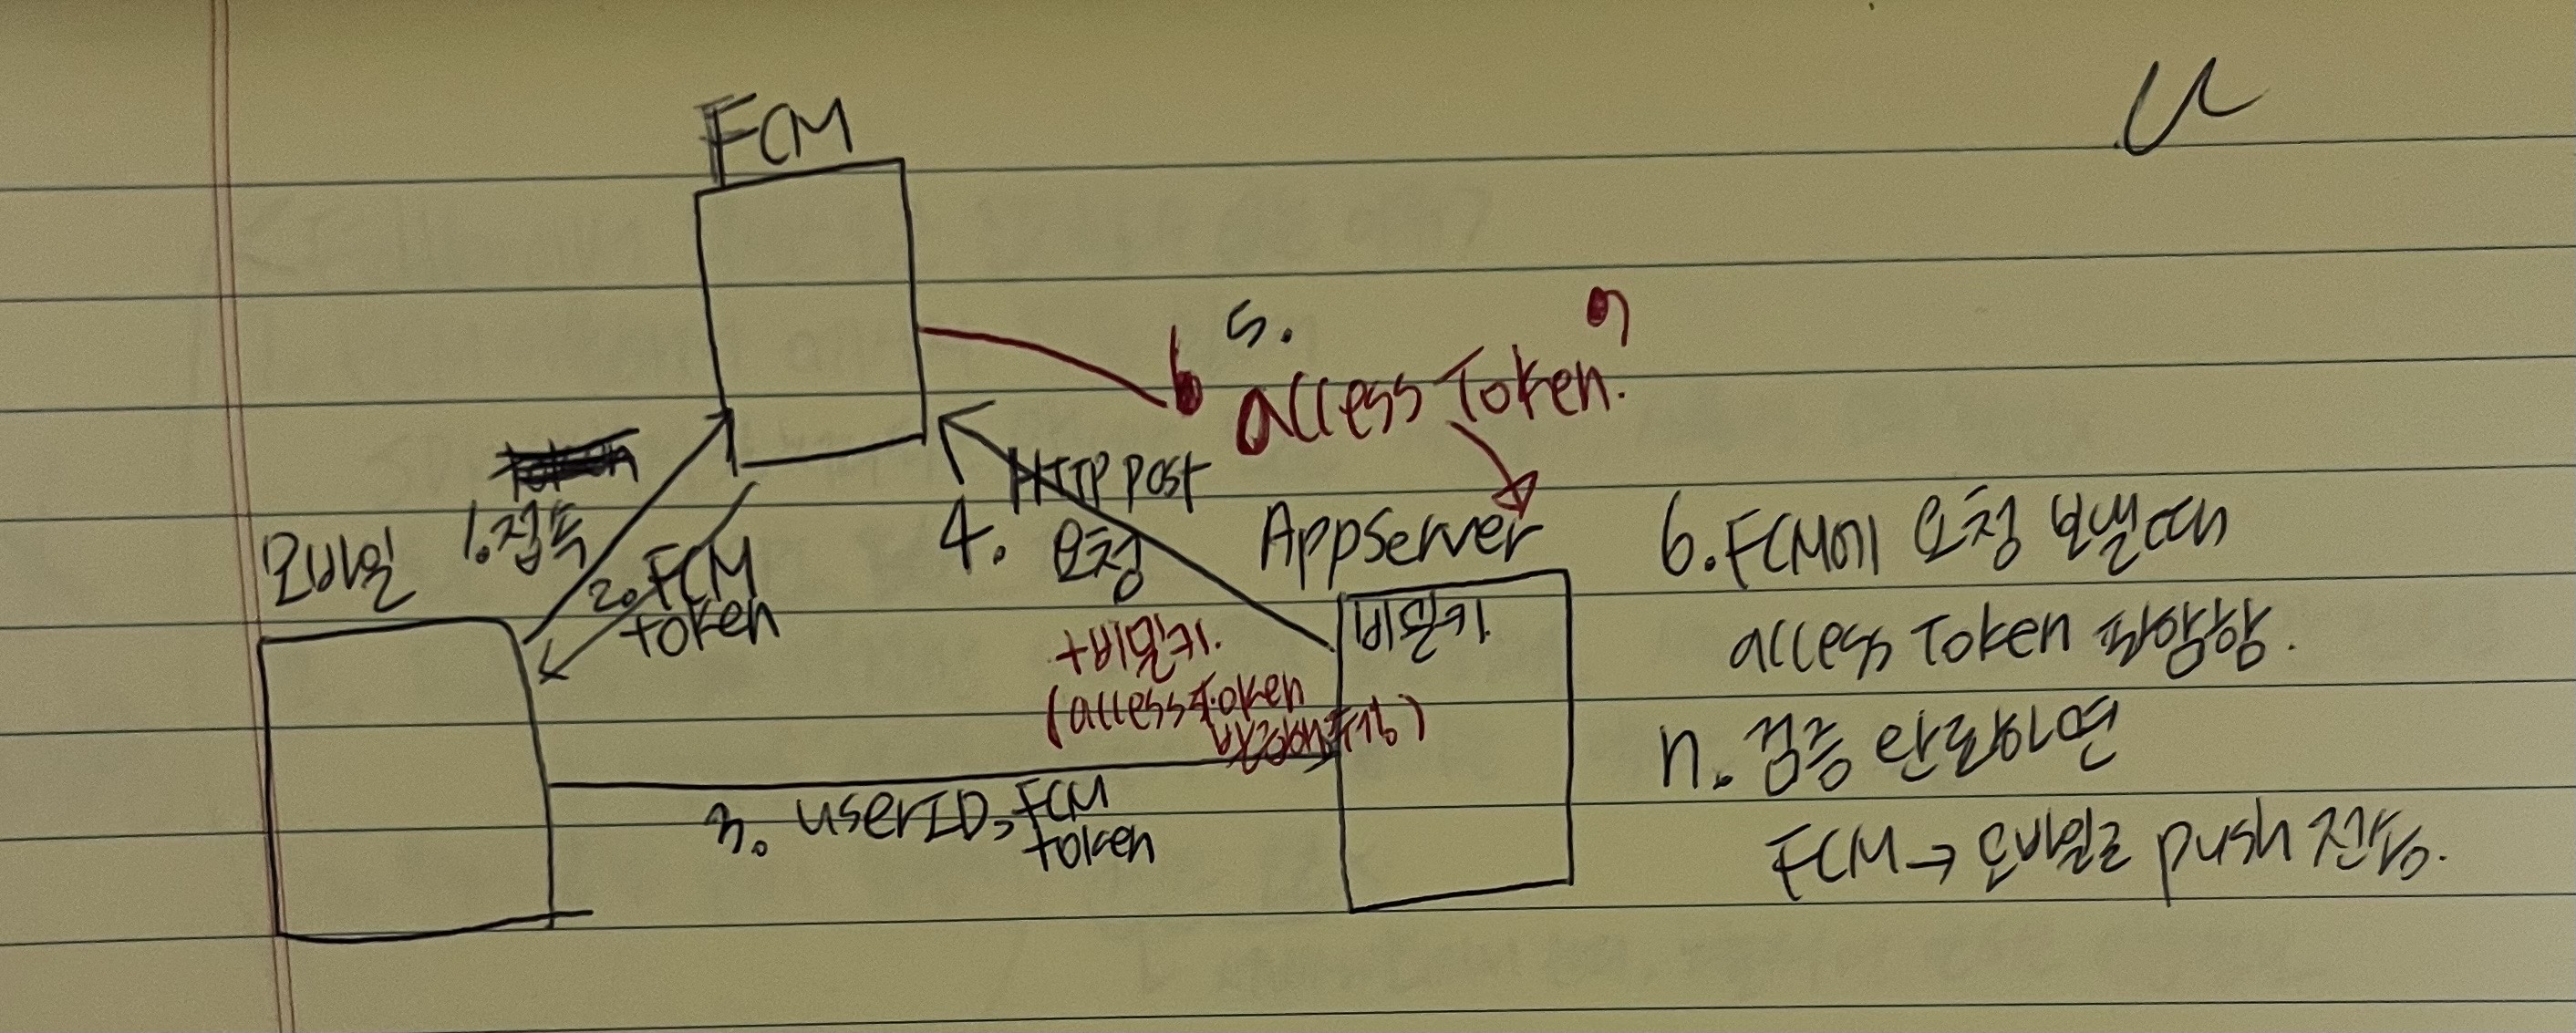 FCM
5.
access Token.
1. 접속
2. FCM
token
모바일
4. HTTP post
요청
AppServer
비밀키
+비밀키.
(access token
3. userID, FCM
token
6. FCM에 요청 보낼때
access Token 포함함.
7. 검증 완료하면
FCM → 모바일로 push 전송.